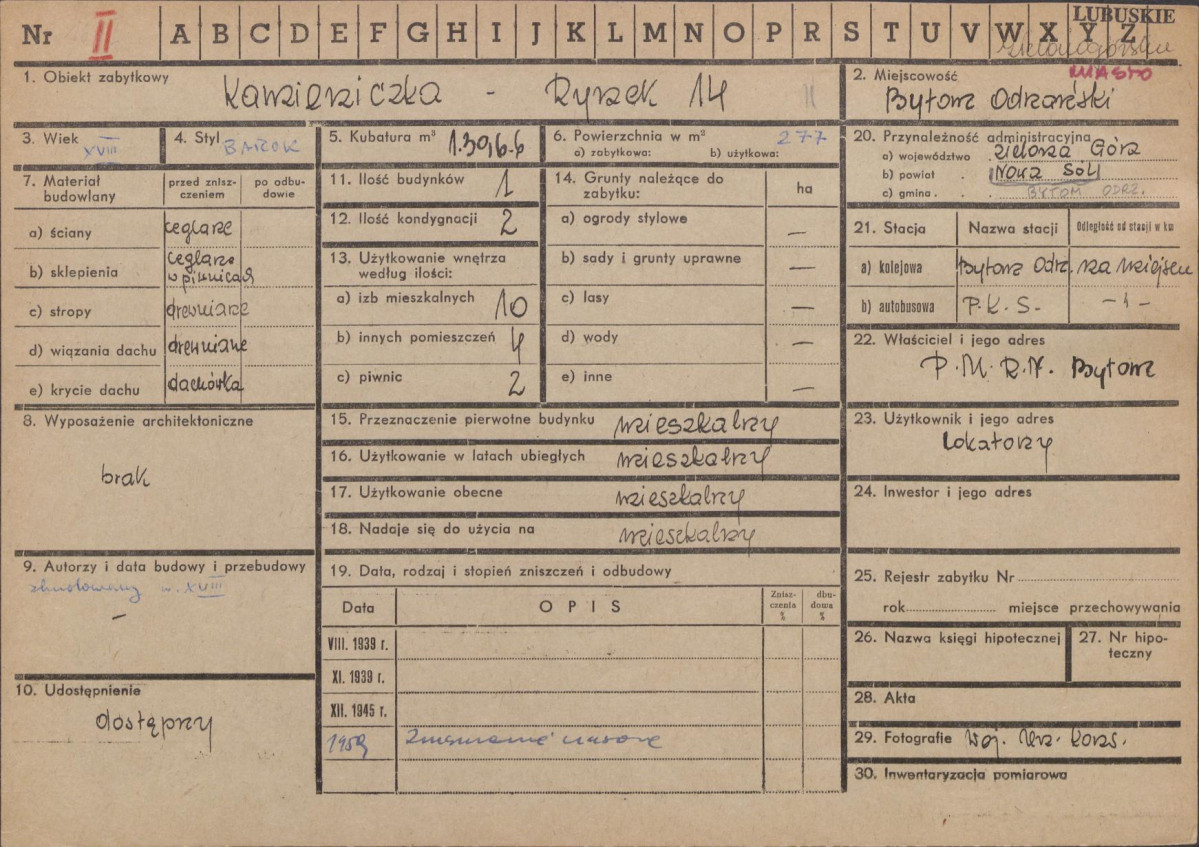 Nr II A B C D E F G H I J K L M N O P R S T U V W X Y Z LUBUSKIE
Zielonogórskie
1. Obiekt zabytkowy
Kamieniczka - Rynek 14 II
2. Miejscowość MIASTO
Bytom Odrzański
3. Wiek XVIII
4. Styl BAROK
5. Kubatura m³ 1.396.6
6. Powierzchnia w m² 277
a) zabytkowa: b) użytkowa:
7. Materiał budowlany
przed zniszczeniem
po odbudowie
a) ściany ceglane
b) sklepienia ceglane w piwnicach
c) stropy drewniane
d) wiązania dachu drewniane
e) krycie dachu dachówka
8. Wyposażenie architektoniczne
brak
9. Autorzy i data budowy i przebudowy
zbudowany w. XVIII
–
10. Udostępnienie
dostępny
11. Ilość budynków 1
12. Ilość kondygnacji 2
13. Użytkowanie wnętrza
według ilości:
a) izb mieszkalnych 10
b) innych pomieszczeń 4
c) piwnic 2
14. Grunty należące do
zabytku: ha
a) ogrody stylowe –
b) sady i grunty uprawne –
c) lasy –
d) wody –
e) inne –
15. Przeznaczenie pierwotne budynku mieszkalny
16. Użytkowanie w latach ubiegłych mieszkalny
17. Użytkowanie obecne mieszkalny
18. Nadaje się do użycia na mieszkalny
19. Data, rodzaj i stopień zniszczeń i odbudowy
Data OPIS Zniszczenia % dbudowa %
VIII. 1939 r.
XI. 1939 r.
XII. 1945 r.
1959
20. Przynależność administracyjna
a) województwo Zielona Góra
b) powiat Nowa Sól
c) gmina BYTOM ODRZ.
21. Stacja Nazwa stacji Odległość od stacji w km
a) kolejowa Bytom Odrz. na miejscu
b) autobusowa P.K.S. –1–
22. Właściciel i jego adres
P.M.R.N. Bytom
23. Użytkownik i jego adres
Lokatorzy
24. Inwestor i jego adres
25. Rejestr zabytku Nr
rok miejsce przechowywania
26. Nazwa księgi hipotecznej
27. Nr hipo-
teczny
28. Akta
29. Fotografie Woj. Urz. Kons.
30. Inwentaryzacja pomiarowa